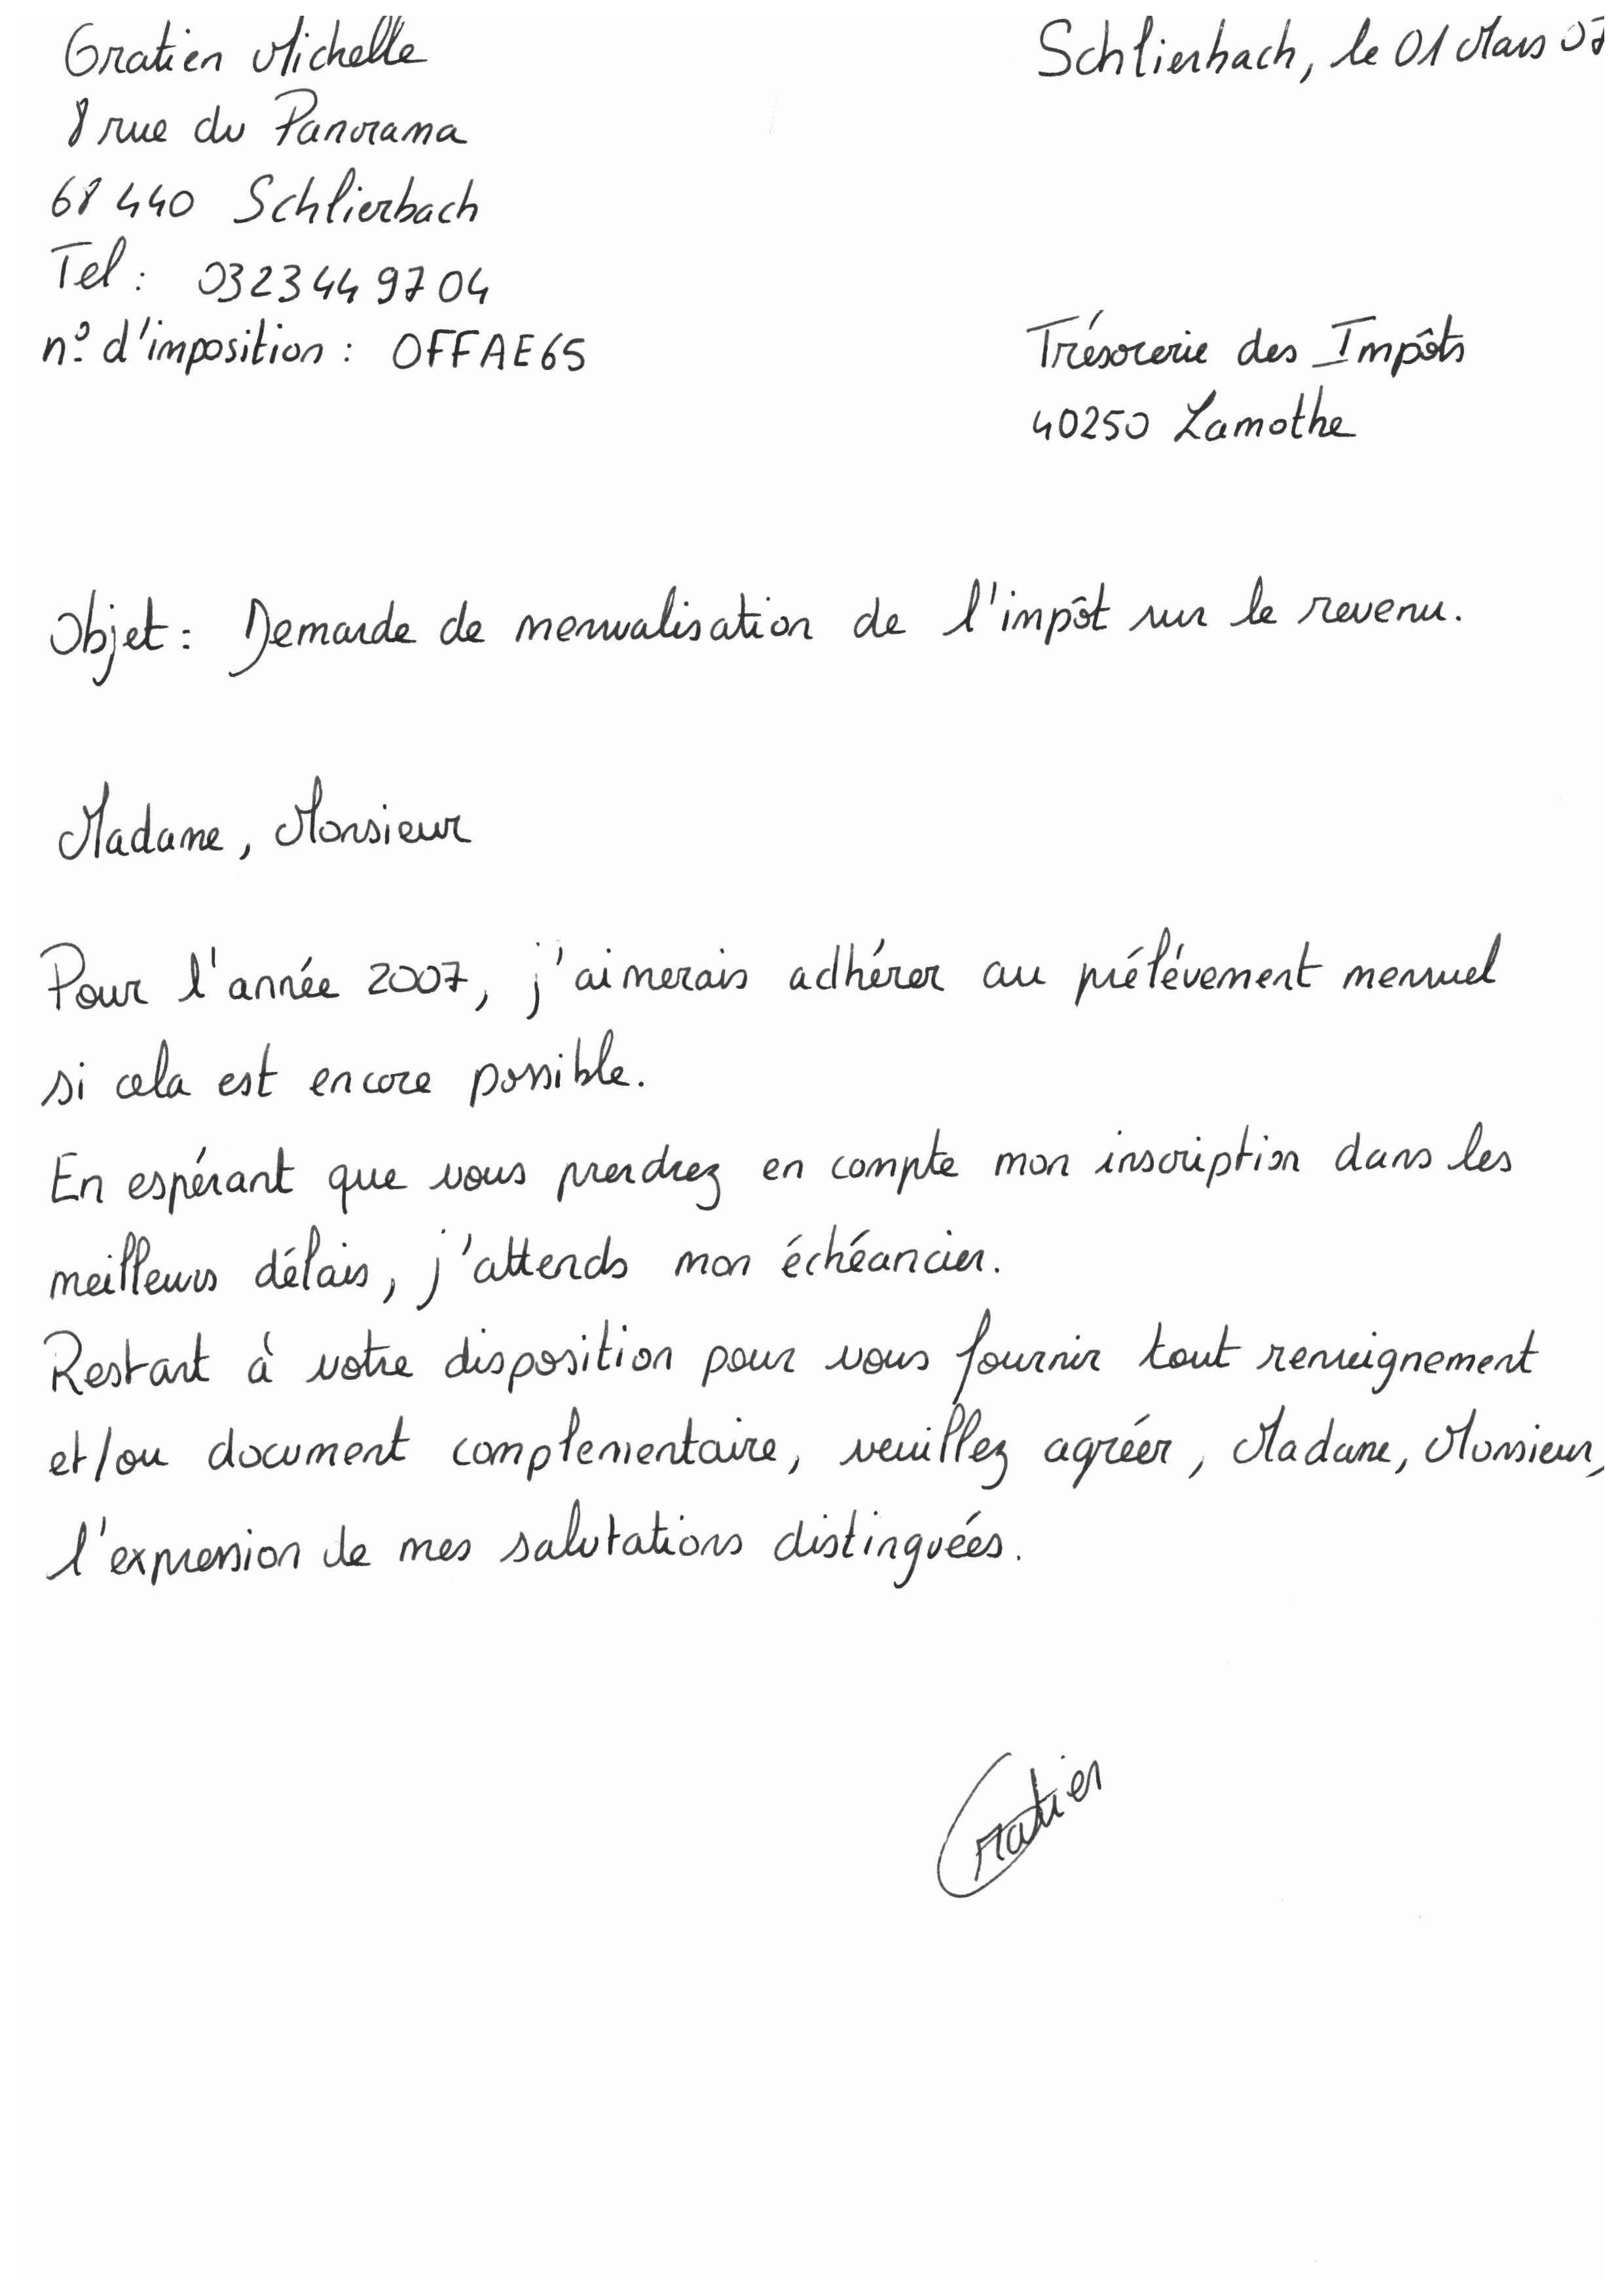 Gratien Michelle
Schlierbach, le 01 Mars 07
8 rue du Panorama
68 440 Schlierbach
Tel : 03 23 44 97 04
n° d'imposition : OFFAE65
Trésorerie des Impôts
40250 Lamothe
Objet : Demande de mensualisation de l'impôt sur le revenu.
Madame, Monsieur
Pour l'année 2007, j'aimerais adhérer au prélévement mensuel
si cela est encore possible.
En espérant que vous prendrez en compte mon inscription dans les
meilleurs délais, j'attends mon échéancier.
Restant à votre disposition pour vous fournir tout renseignement
et/ou document complementaire, veuillez agréer, Madame, Monsieur,
l'expression de mes salutations distinguées.
Gratien